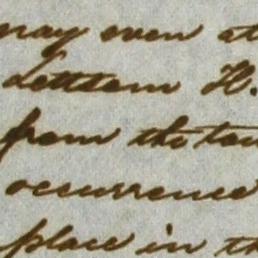 may even at
Lettsom H.
from the tow
occurrence
place in th